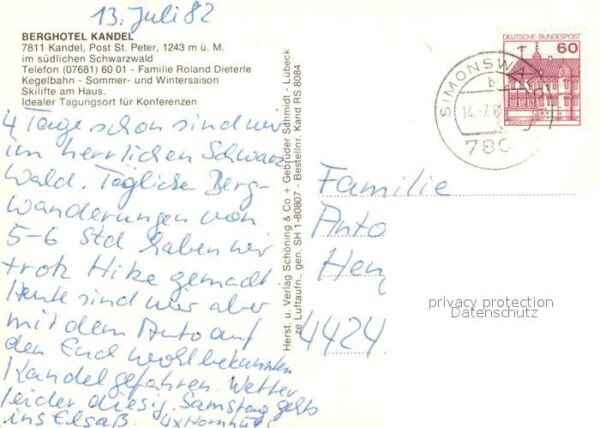 13. Juli 82
BERGHOTEL KANDEL
7811 Kandel, Post St. Peter, 1243 m ü. M.
im südlichen Schwarzwald
Telefon (07681) 60 01 - Familie Roland Dieterle
Kegelbahn - Sommer- und Wintersaison
Skilifte am Haus.
Idealer Tagungsort für Konferenzen
4 Tage schon sind wir
im herrlichen Schwarz
Wald. Tägliche Berg-
wanderungen von
5-6 Std haben wir
trotz Hitze gemacht
Heute sind wir aber
mit dem Auto auf
den Euch wohlbekannten
Kandel gefahren. Wetter
leider diesig. Samstag gehts
ins Elsaß. 4x
Herst. u. Verlag Schöning & Co + Gebrüder Schmidt - Lübeck
ze Luftaufn., gen. SH 1-80807 - Bestellnr. Kand RS 8084
DEUTSCHE BUNDESPOST
60
SIMONSWALD
b
14.-7.8
780
Familie
Anto
Hen
4424
privacy protection
Datenschutz